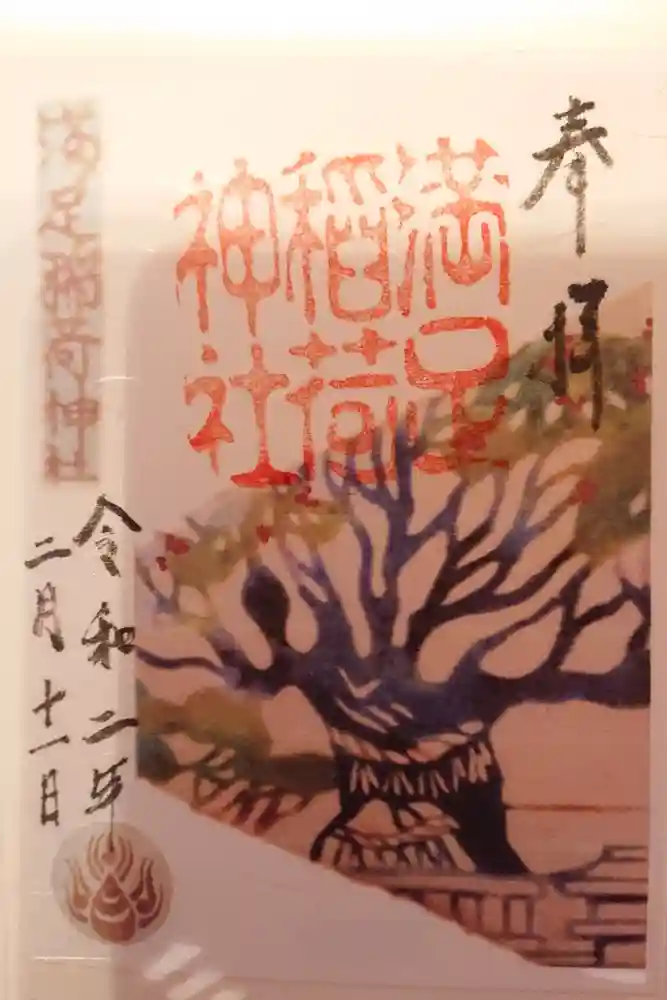 奉拝
満足
稲荷
神社
満足稲荷神社
令和二年
二月十一日